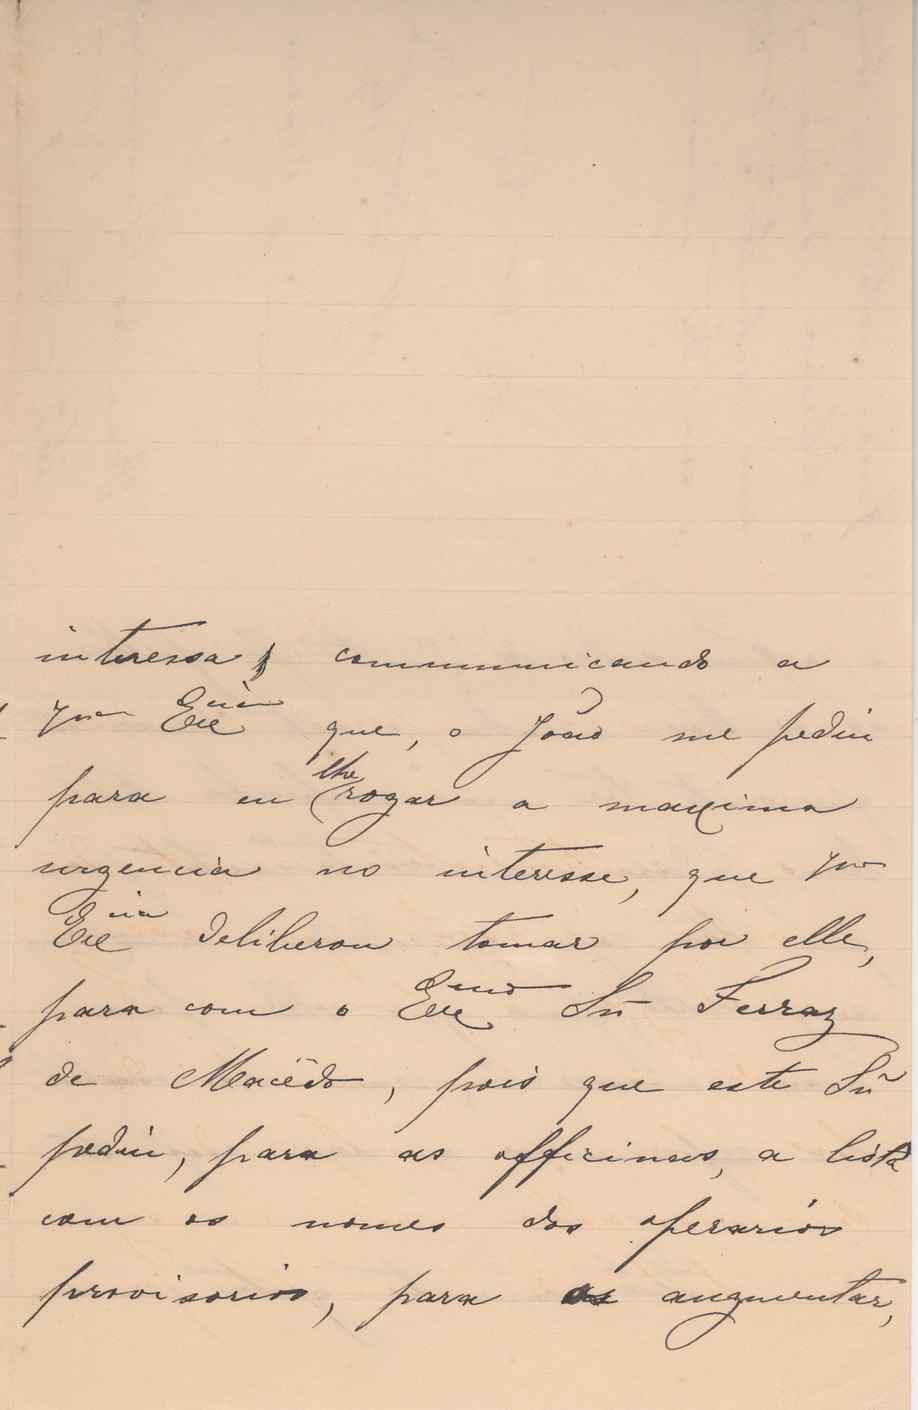 interessa, communicando a
Vra Excia que, o João me pediu
para eu lhe rogar a maxima
urgencia no interesse, que Vra
Excia deliberou tomar por elle,
para com o Exmo Snr Ferraz
de Macêdo, pois que este Snr
pediu, para as officinas, a lista
com os nomes dos operarios
provisorios, para os augmentar,